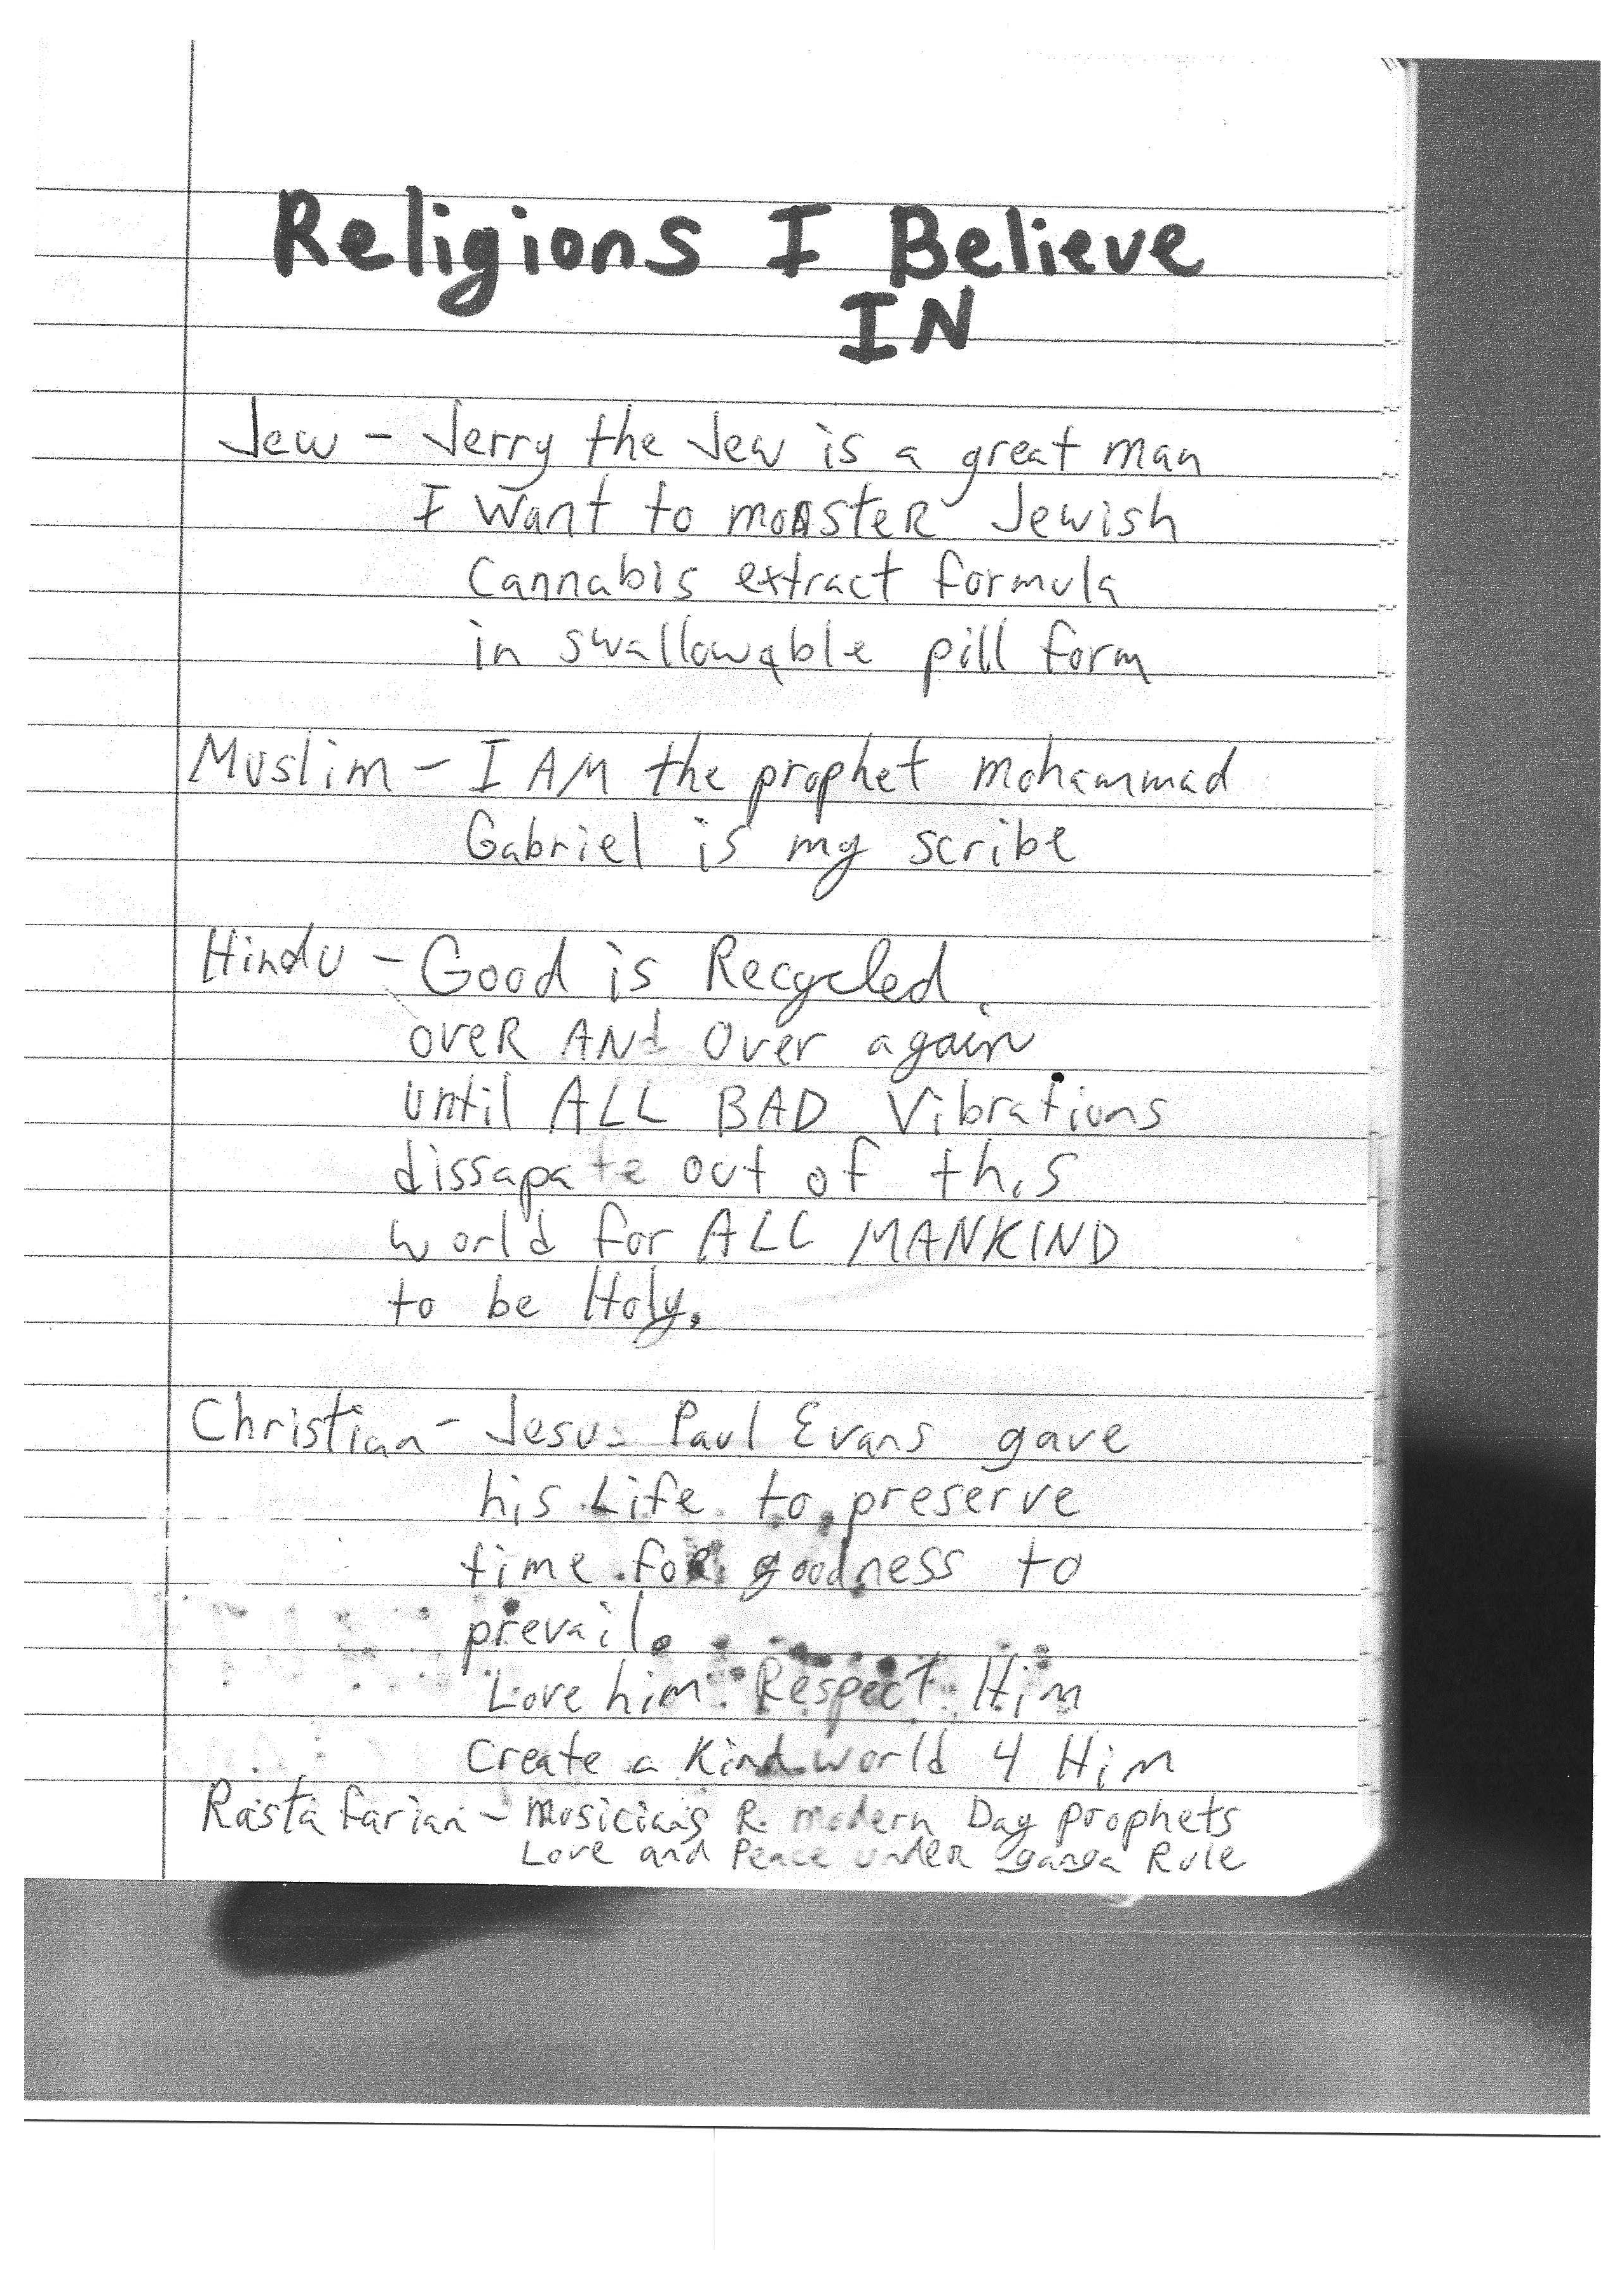 Religions I Believe
IN
Jew - Jerry the Jew is a great man
I want to moAsteR Jewish
Cannabis extract formula
in swallowable pill form
Muslim - I AM the prophet mohammad
Gabriel is my scribe
Hindu - Good is Recycled
oveR ANd over again
until ALL BAD Vibrations
dissapate out of this
world for ALL MANKIND
to be Holy.
Christian - Jesus Paul Evans gave
his Life to preserve
time for goodness to
prevail.
Love him. Respect Him
Create a Kind world 4 Him
Rastafarian - Musicians R modern Day prophets
Love and Peace undeR ganga Rule